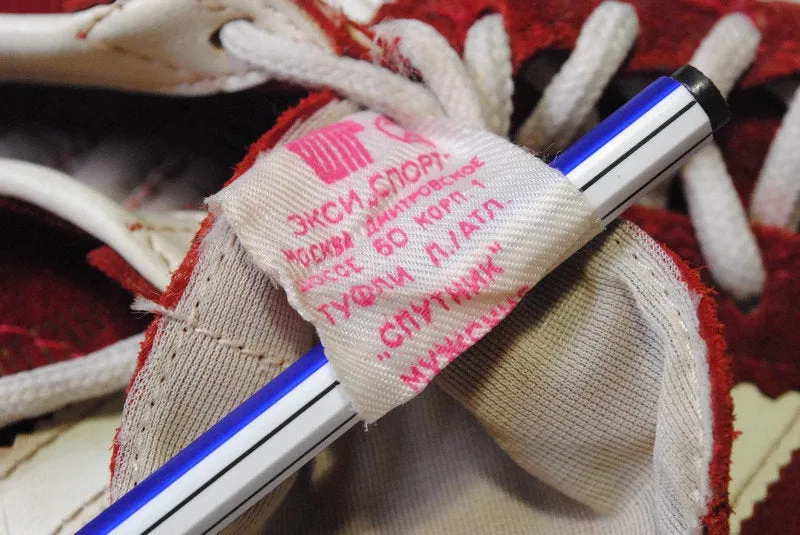 ЭКСИ „СПОРТ"
МОСКВА ДМИТРОВСКОЕ
ШОССЕ 60 КОРП. 1
ТУФЛИ Л./АТЛ.
„СПУТНИК"
МУЖСКИЕ